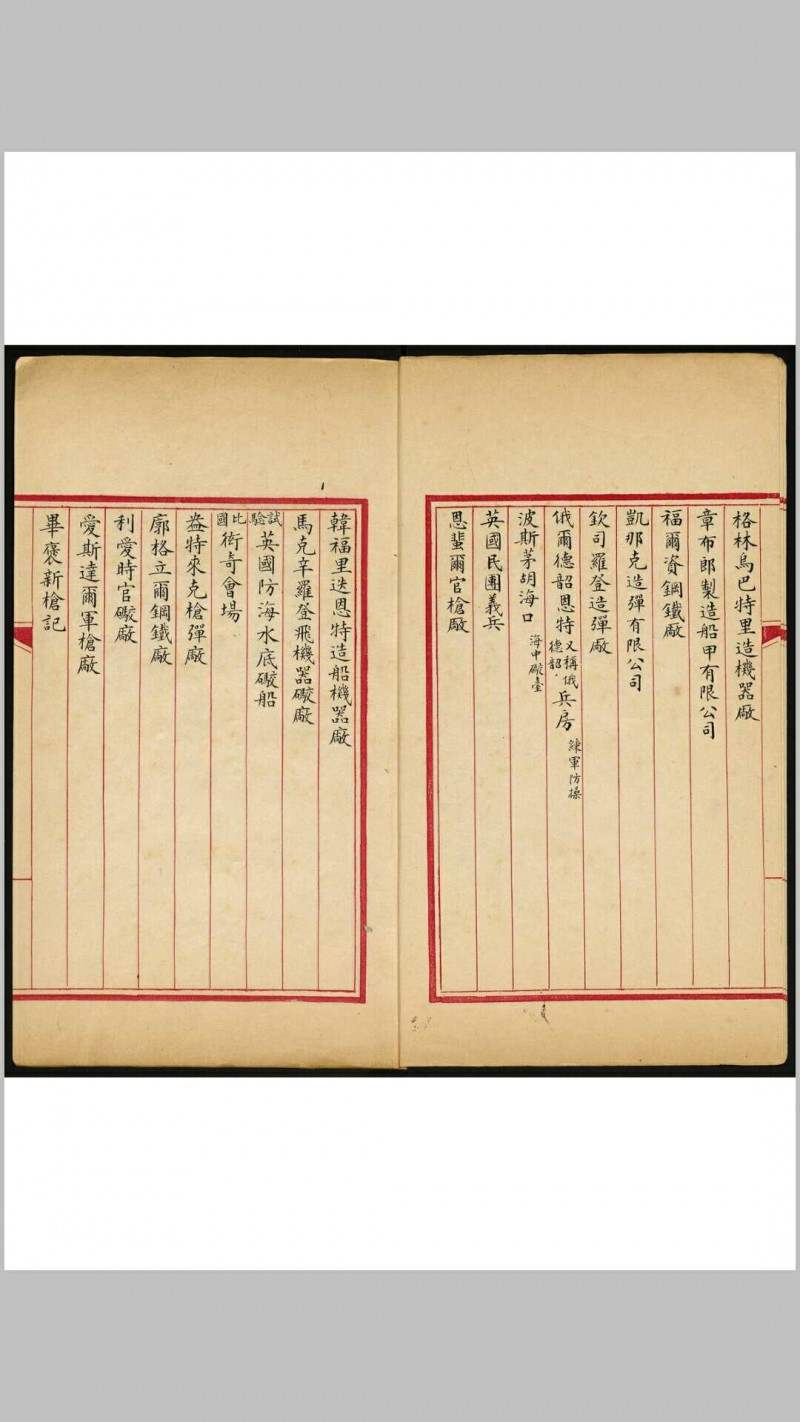 格林烏巴特里造機器廠
章布郎製造船甲有限公司
福爾資鋼鐵廠
凱那克造彈有限公司
欽司羅登造彈廠
俄爾德韶恩特又稱俄德韶兵房練軍防操
波斯茅胡海口海中礮臺
英國民團義兵
恩蜚爾官槍廠
韓福里迭恩特造船機器廠
馬克辛羅登飛機器礮廠
試驗英國防海水底礮船
比國衒奇會場
盎特來克槍彈廠
廓格立爾鋼鐵廠
利愛時官礮廠
愛斯達爾軍槍廠
畢褒新槍記